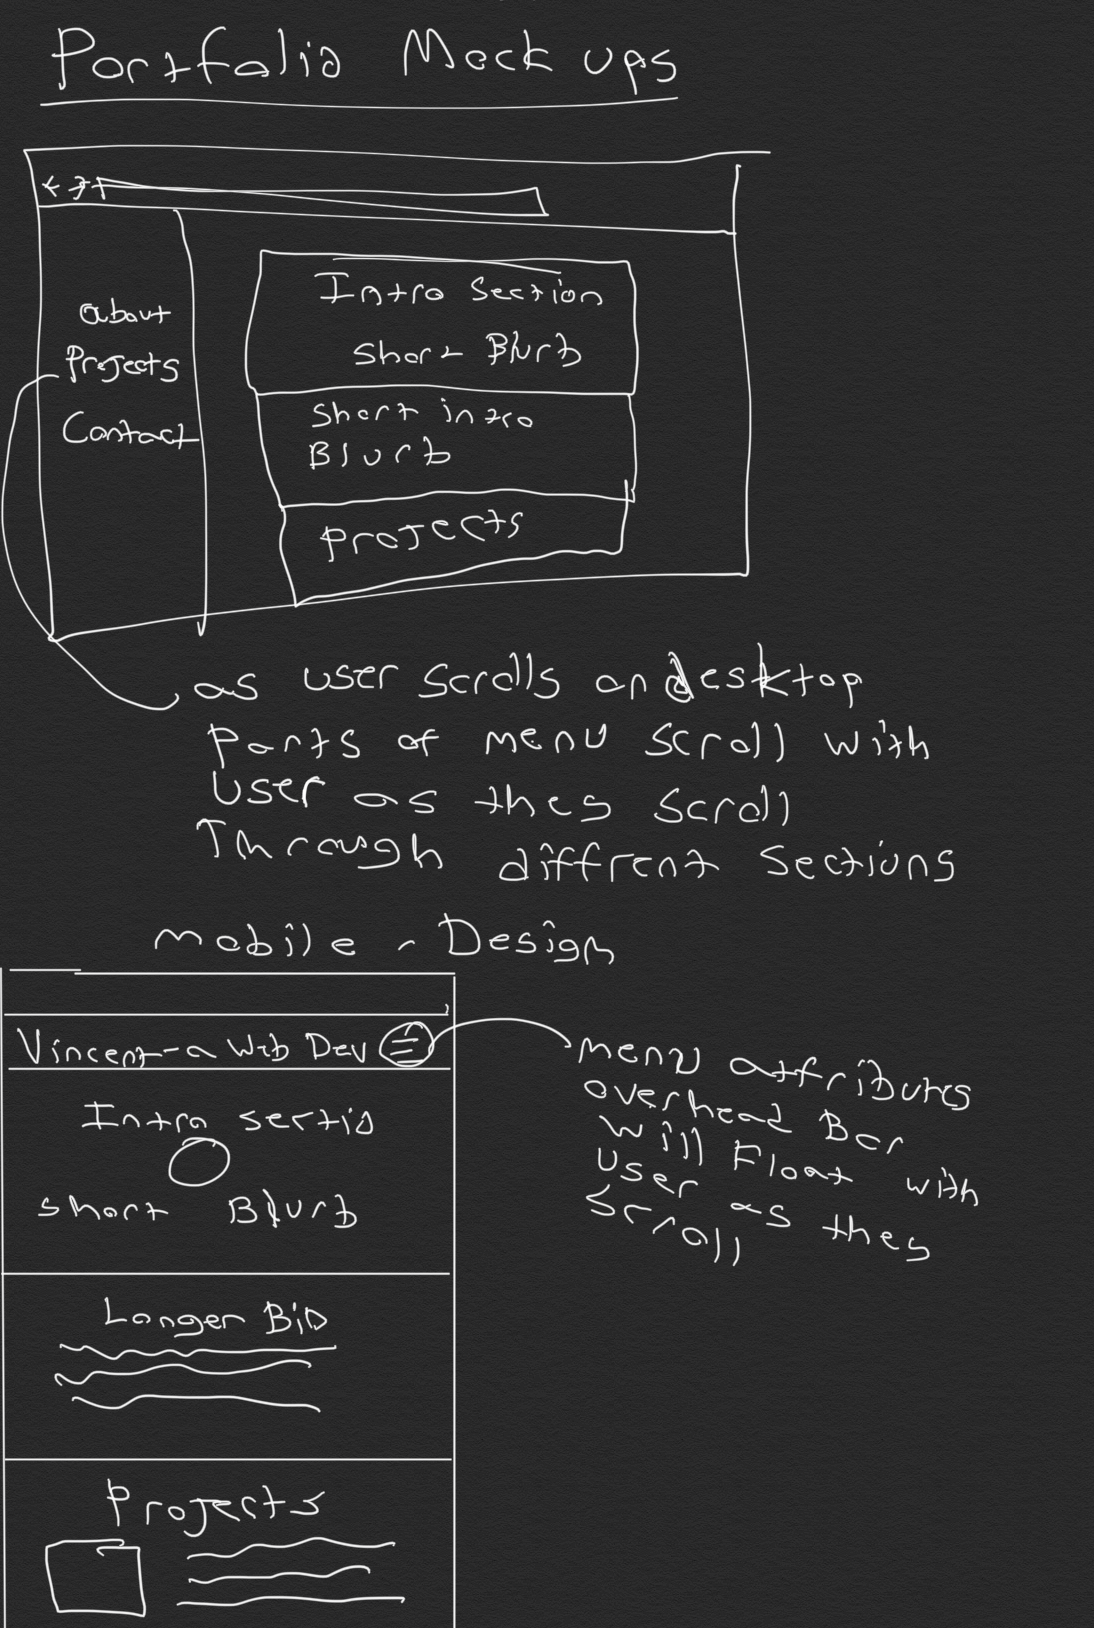 Portfolio Mock ups
about
Projects
Contact
Intro Section
short Blurb
short intro
Blurb
Projects
as user scrolls on desktop
parts of menu scroll with
user as they scroll
Through diffrent sections
mobile - Design
Vincent-a Web Dev
Intro sectio
short Blurb
Longer Bio
Projects
menu attributes
overhead Bar
will Float with
user as they
scroll